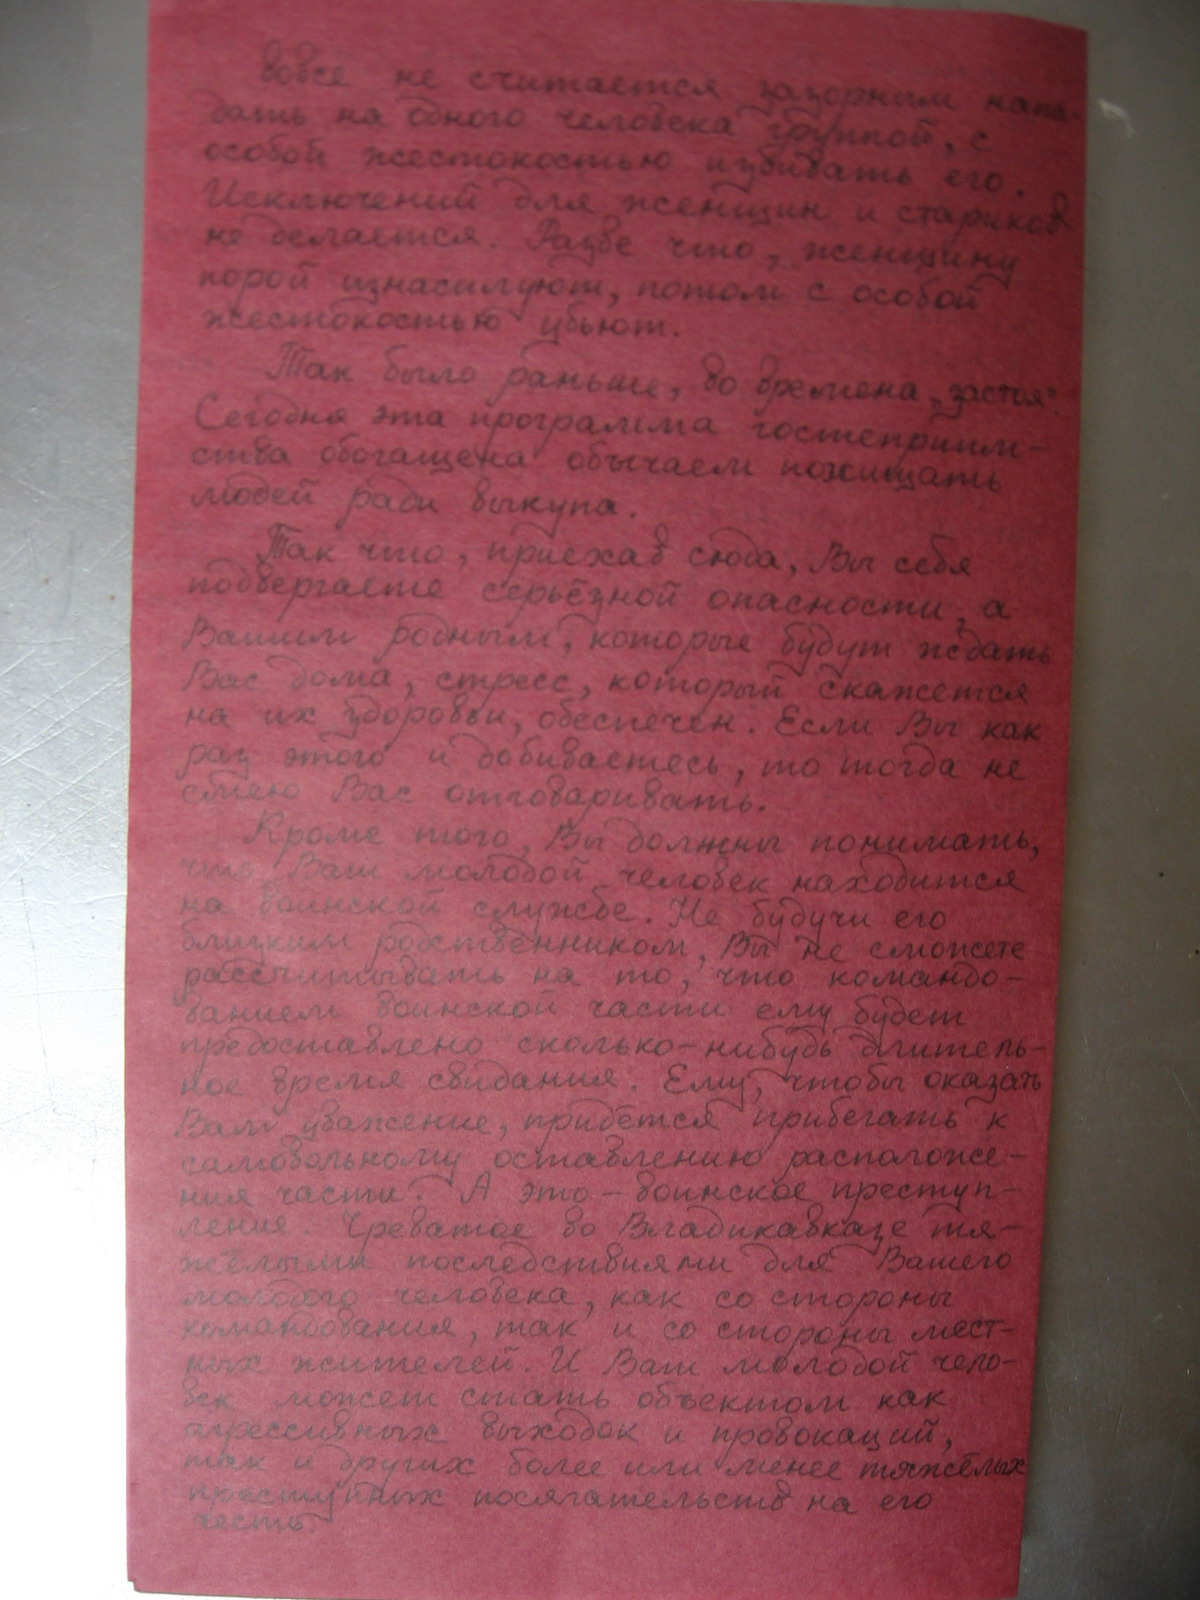 вовсе не считается зазорным напа-
дать на одного человека группой, с
особой жестокостью избивать его.
Исключений для женщин и стариков
не делается. Разве что, женщину
порой изнасилуют, потом с особой
жестокостью убьют.
Так было раньше, во времена „застоя".
Сегодня эта программа гостеприим-
ства обогащена обычаем похищать
людей ради выкупа.
Так что, приехав сюда, Вы себя
подвергаете серьёзной опасности, а
Вашим родным, которые будут ждать
Вас дома, стресс, который скажется
на их здоровьи, обеспечен. Если Вы как
раз этого и добиваетесь, то тогда не
смею Вас отговаривать.
Кроме того, Вы должны понимать,
что Ваш молодой человек находится
на воинской службе. Не будучи его
близким родственником, Вы не сможете
рассчитывать на то, что командо-
ванием воинской части ему будет
предоставлено сколько-нибудь длитель-
ное время свидания. Ему, чтобы оказать
Вам уважение, придётся прибегать к
самовольному оставлению расположе-
ния части. А это – воинское преступ-
ление. Чреватое во Владикавказе тя-
жёлыми последствиями для Вашего
молодого человека, как со стороны
командования, так и со стороны мест-
ных жителей. И Ваш молодой чело-
век может стать объектом как
агрессивных выходок и провокаций,
так и других более или менее тяжёлых
преступных посягательств на его
честь.